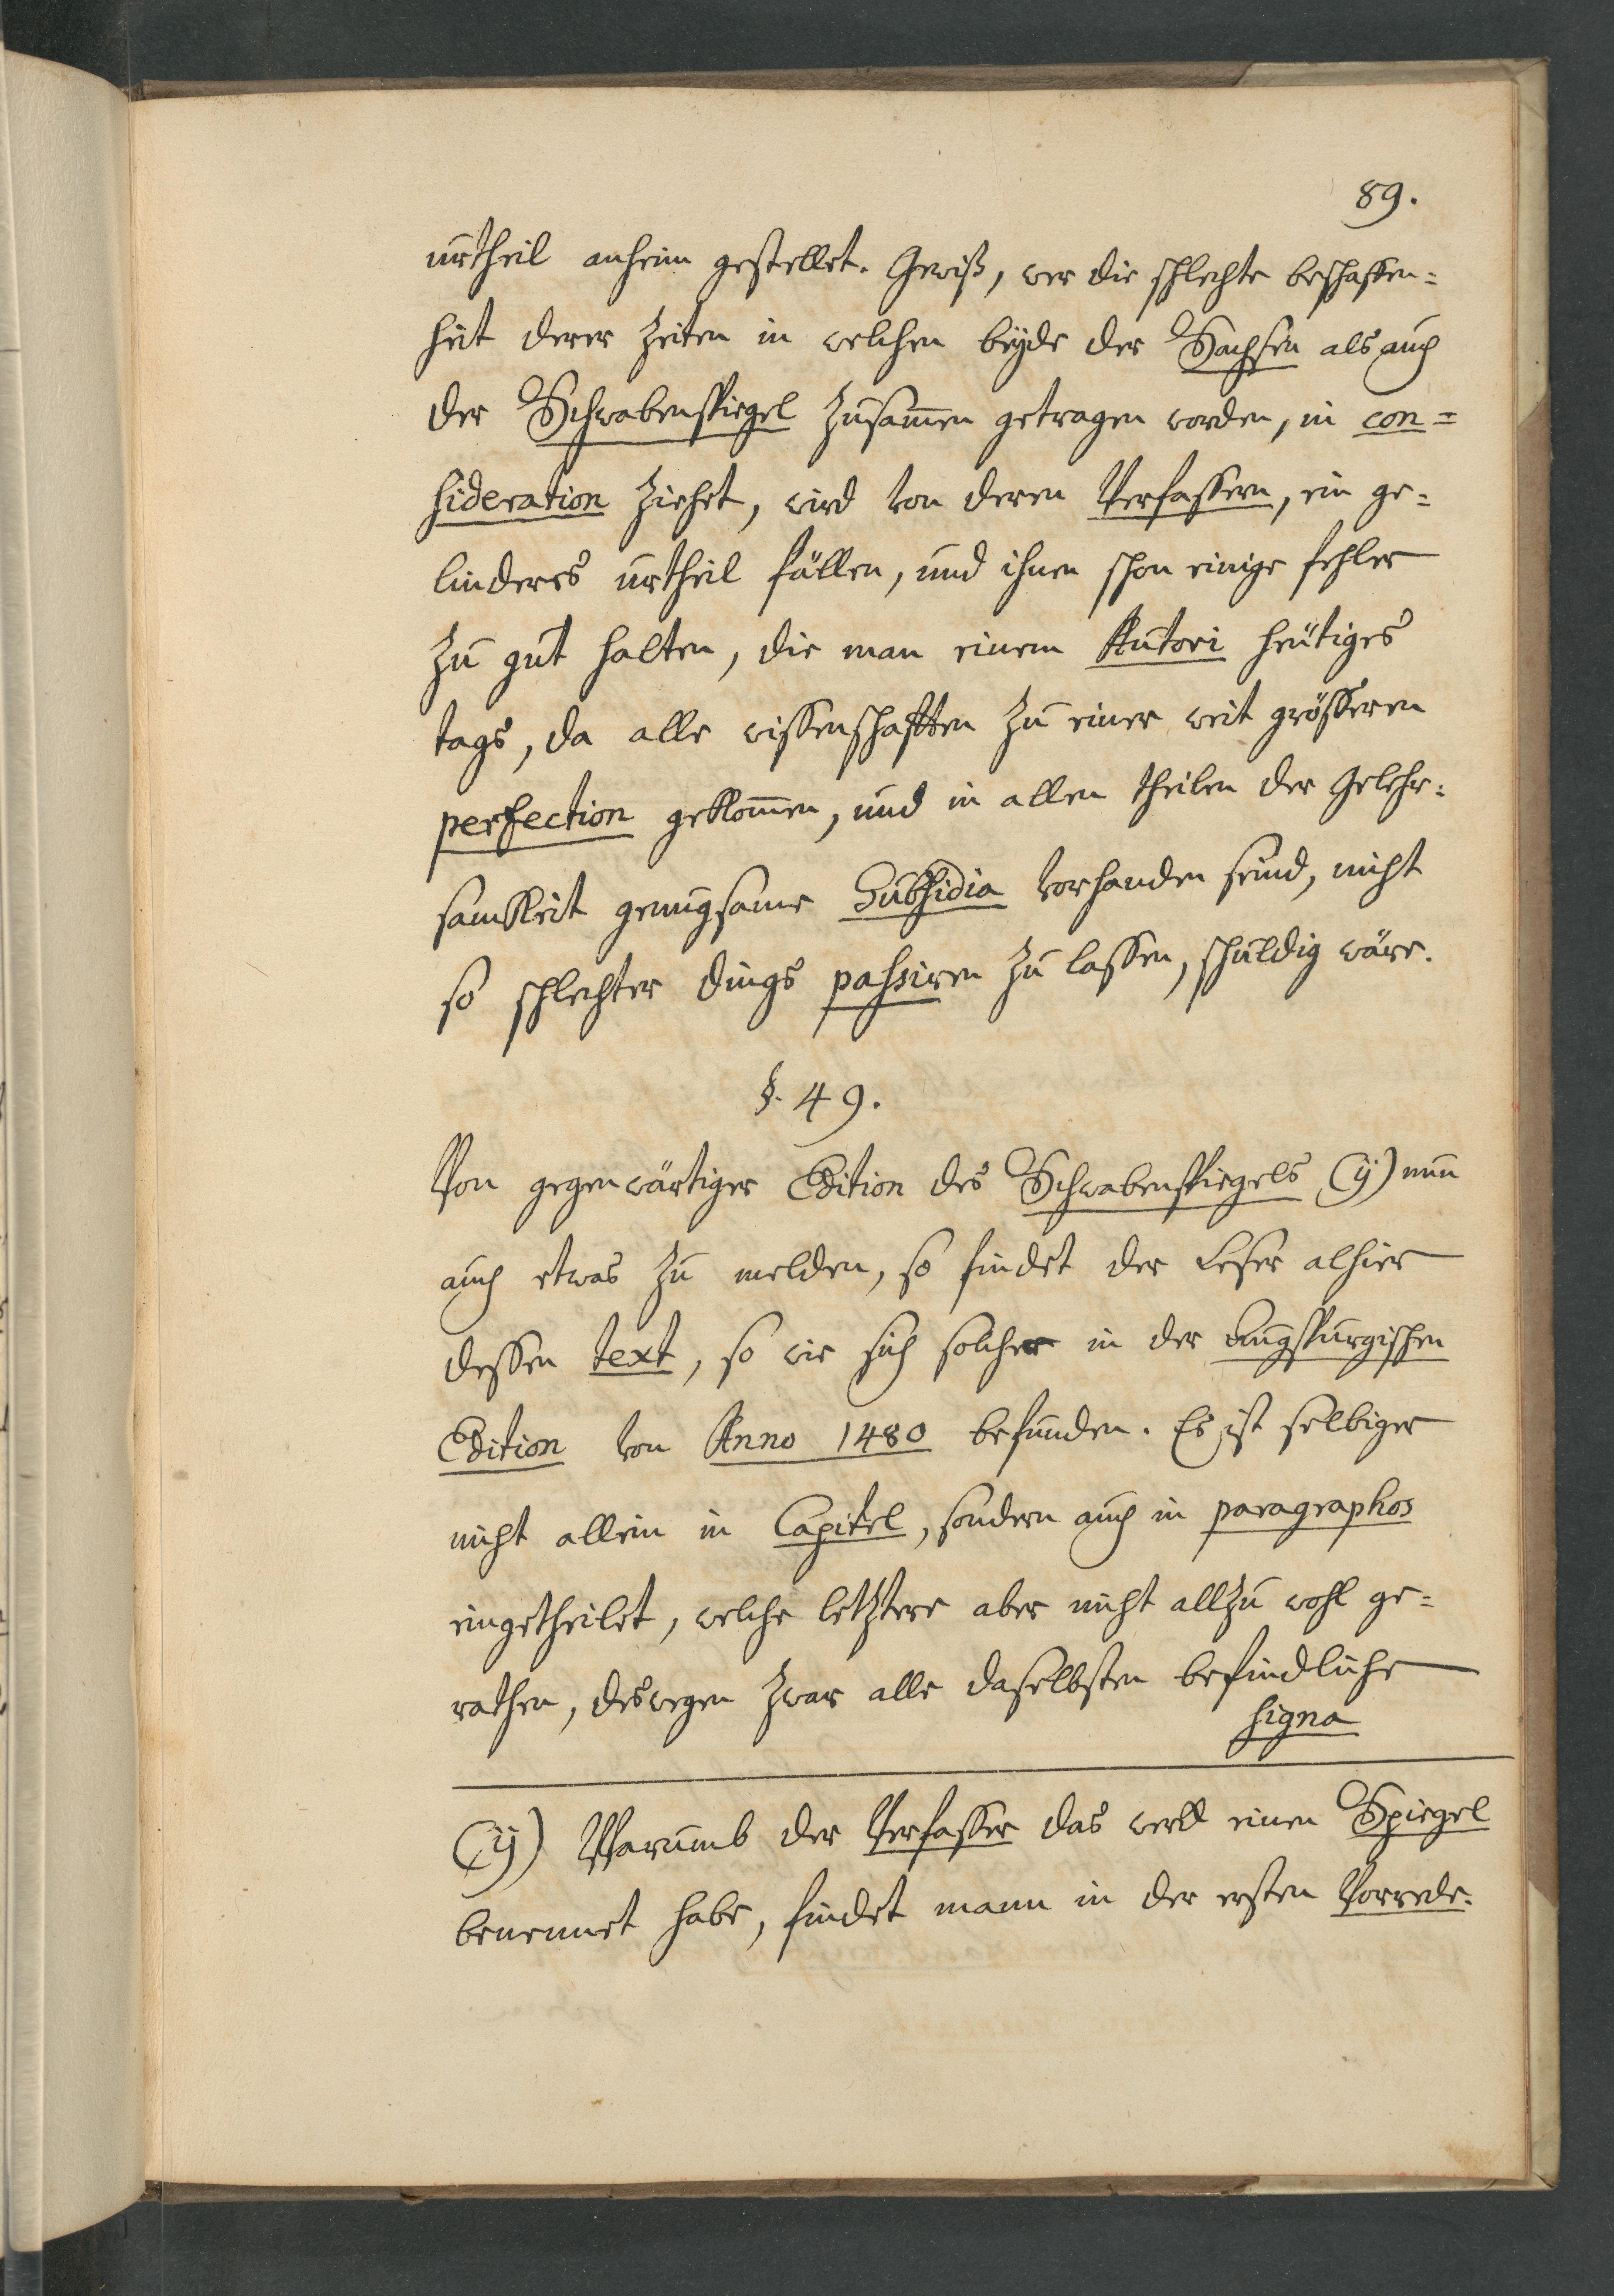 89.
urtheil anheim gestellet. Gewiß, wer die schlechte beschaffen=
heit derer Zeiten in welchen beyde der Sachsen als auch
der Schwabenspiegel zusam̄en getragen worden, in con=
sideration ziehet, wird von deren Verfassern, ein ge=
linderes urtheil fällen, und ihnen schon einige fehler
zu gut halten, die man einem Autori heütiges
tags, da alle wissenschafften zu einer weit grösseren
perfection gekom̄en, und in allen theilen der Gelehr=
samkeit genugsame Subsidia vorhanden seind, nicht
so schlechter dings passiren zu lassen, schuldig wäre.
§. 49.
Von gegenwärtiger Edition des Schwabenspiegels (ÿ) nun
auch etwas zu melden, so findet der Leser alhier
dessen text, so wie sich solcher in der Augspurgischen
Edition von Anno 1480 befunden. Es ist selbiger
nicht allein in Capitel, sondern auch in paragraphos
eingetheilet, welche letztere aber nicht allzu wohl ge=
rathen, deswegen zwar alle daselbsten befindliche
signa
(ÿ) Warumb der Verfasser das werk einen Spiegel
benennet habe, findet mann in der ersten Vorrede.